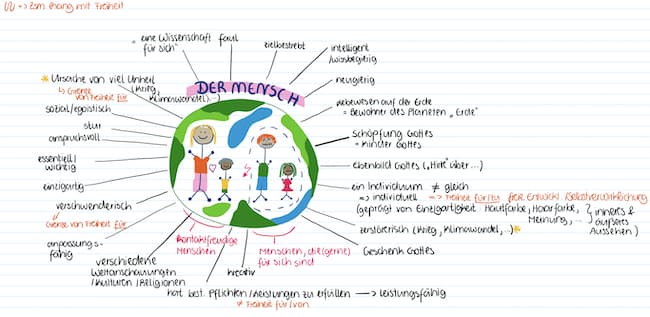 -> Zsm.hang mit Freiheit
"eine Wissenschaft für sich"
faul
zielbestrebt
intelligent / wissbegierig
neugierig
DER MENSCH
* Ursache von viel Unheil (Krieg, Klimawandel...)
↳ Grenze von Freiheit für
sozial/egoistisch
stur
anspruchsvoll
essentiell/ wichtig
einzigartig
verschwenderisch
↳ Grenze von Freiheit für
anpassungs-
fähig
Lebewesen auf der Erde
= Bewohner des Planeten "Erde"
Schöpfung Gottes
= Kinder Gottes
Ebenbild Gottes ("Hirte" über...)
ein Individuum ≠ gleich
=> individuell => Freiheit für/zu freie Entwickl./Selbstverwirklichung
(geprägt von Einzigartigkeit Hautfarbe, Haarfarbe, Meinung, ... } inneres & äußeres Aussehen)
zerstörerisch (Krieg, Klimawandel, ...) *
Geschenk Gottes
kontaktfreudige Menschen
Menschen, die (gerne) für sich sind
verschiedene
Weltanschauungen
/Kulturen/Religionen
kreativ
hat best. Pflichten/Leistungen zu erfüllen -> leistungsfähig
≠ Freiheit für/von